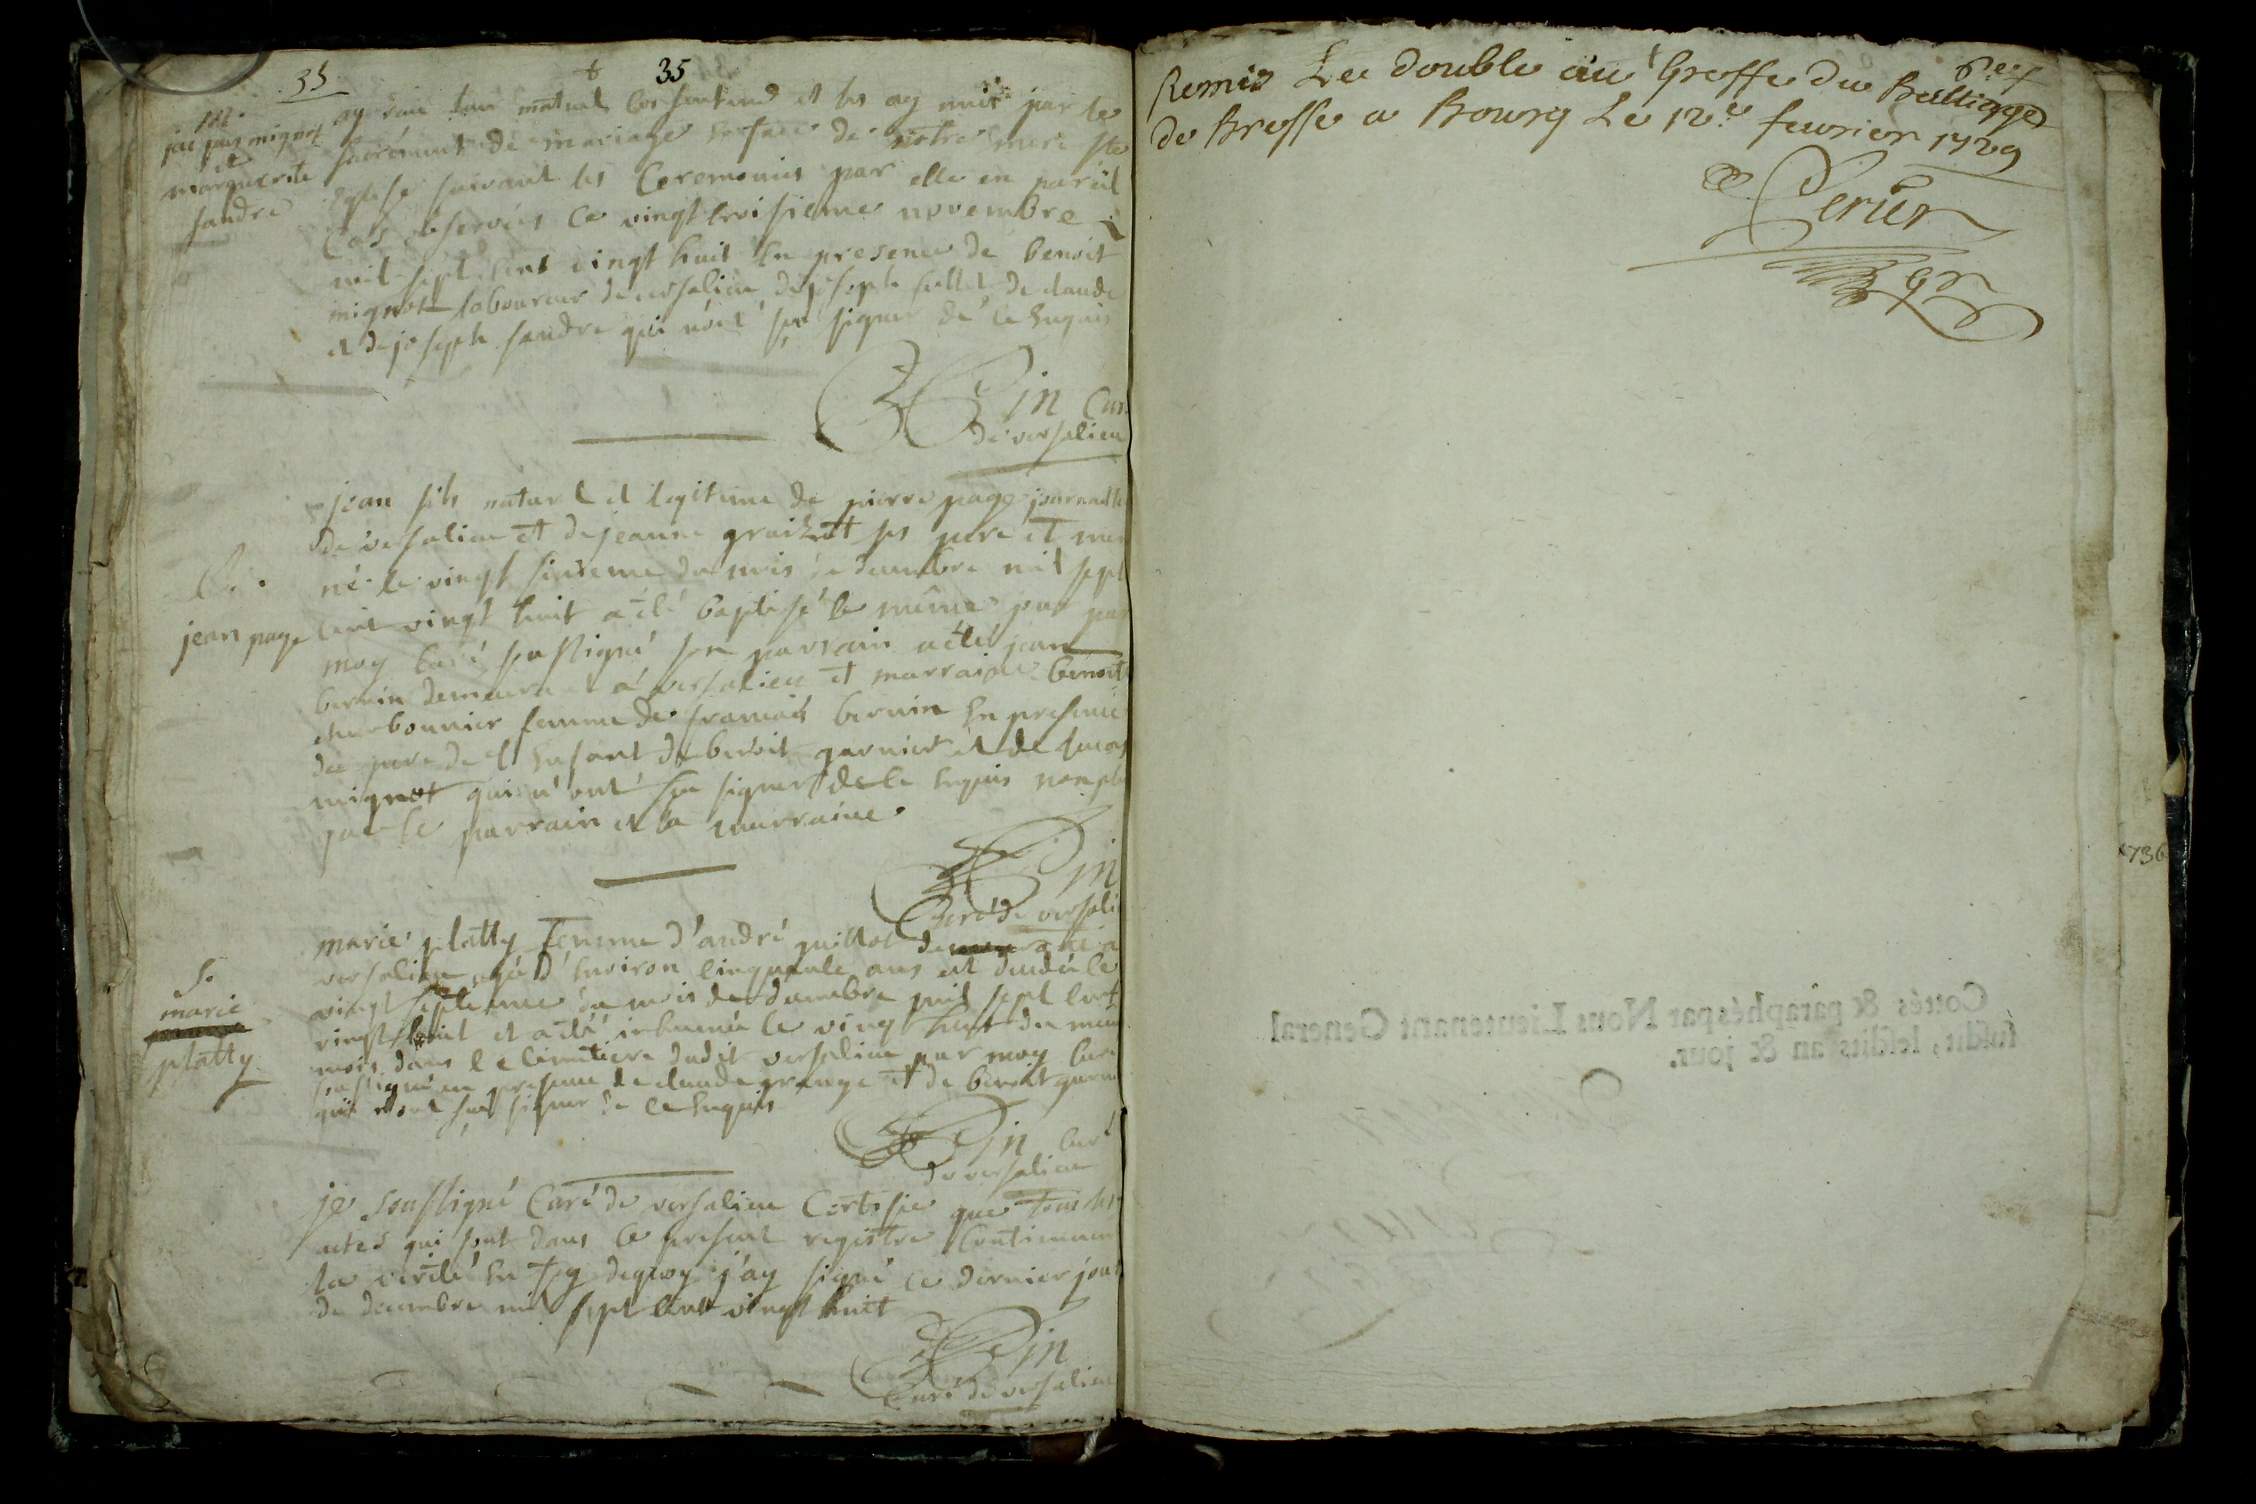 35 35
m.
jacques mignot
et
marguerite
sandre
ay receu leur mutuel consentement et les ay unis par le
sacrement de mariage en face de nôtre mere ste
eglise suivant les Ceremonies par elle en pareil
Cas observées Ce vingt troisieme novembre
mil sept cens vingt huit En presence de benoit
mignot laboureur de versalieu de joseph de claude
et de joseph sandre qui n'ont sçu signer de ce Enquis
Cur
de versalieu
B.
jean page
jean fils naturel et legitime de pierre page journallie
de versalieu et de jeanne ses pere et mer
né le vingt sixieme du mois de decembre mil sept
cent vingt huit a été baptisé le même jour par
moy Curé soussigné son parrain a été jean
bernin demeurant a versalieu et marraine benoite
charbonnier femme de francois bernin En presence
du pere de l'Enfant de benoit garnier et de
mignot qui n'ont sçu signer de ce Enquis non plus
que le parrain et la marraine
Curé de versali
S.
marie
platty
marie platty femme d'andré guillot demeurant a
versalieu agée d'Environ cinquante ans est decedée le
vingt septieme du mois de decembre mil sept cent
vingt huit et a été inhumée le vingt huit du meme
mois dans le cimetiere dudit versalieu par moy Curé
soussigné en presence de claude grange et de benoit garni
qui n'ont sçu signer de ce Enquis
Curé
de versalieu
je soussigné Curé de versalieu Certifie que tous les
actes qui sont dans le present registre Contiennent
la verité En foy dequoy j'ay signé ce dernier jour
de decembre mil sept cent vingt huit
Curé de versalieu
Remis Le double au Greffe du Bailliage
de Bresse a Bourg Le 12e feurier 1729
Perier
Cottés & paraphés par Nous Lieutenant General
susdit, lesdits an & jour.
1736